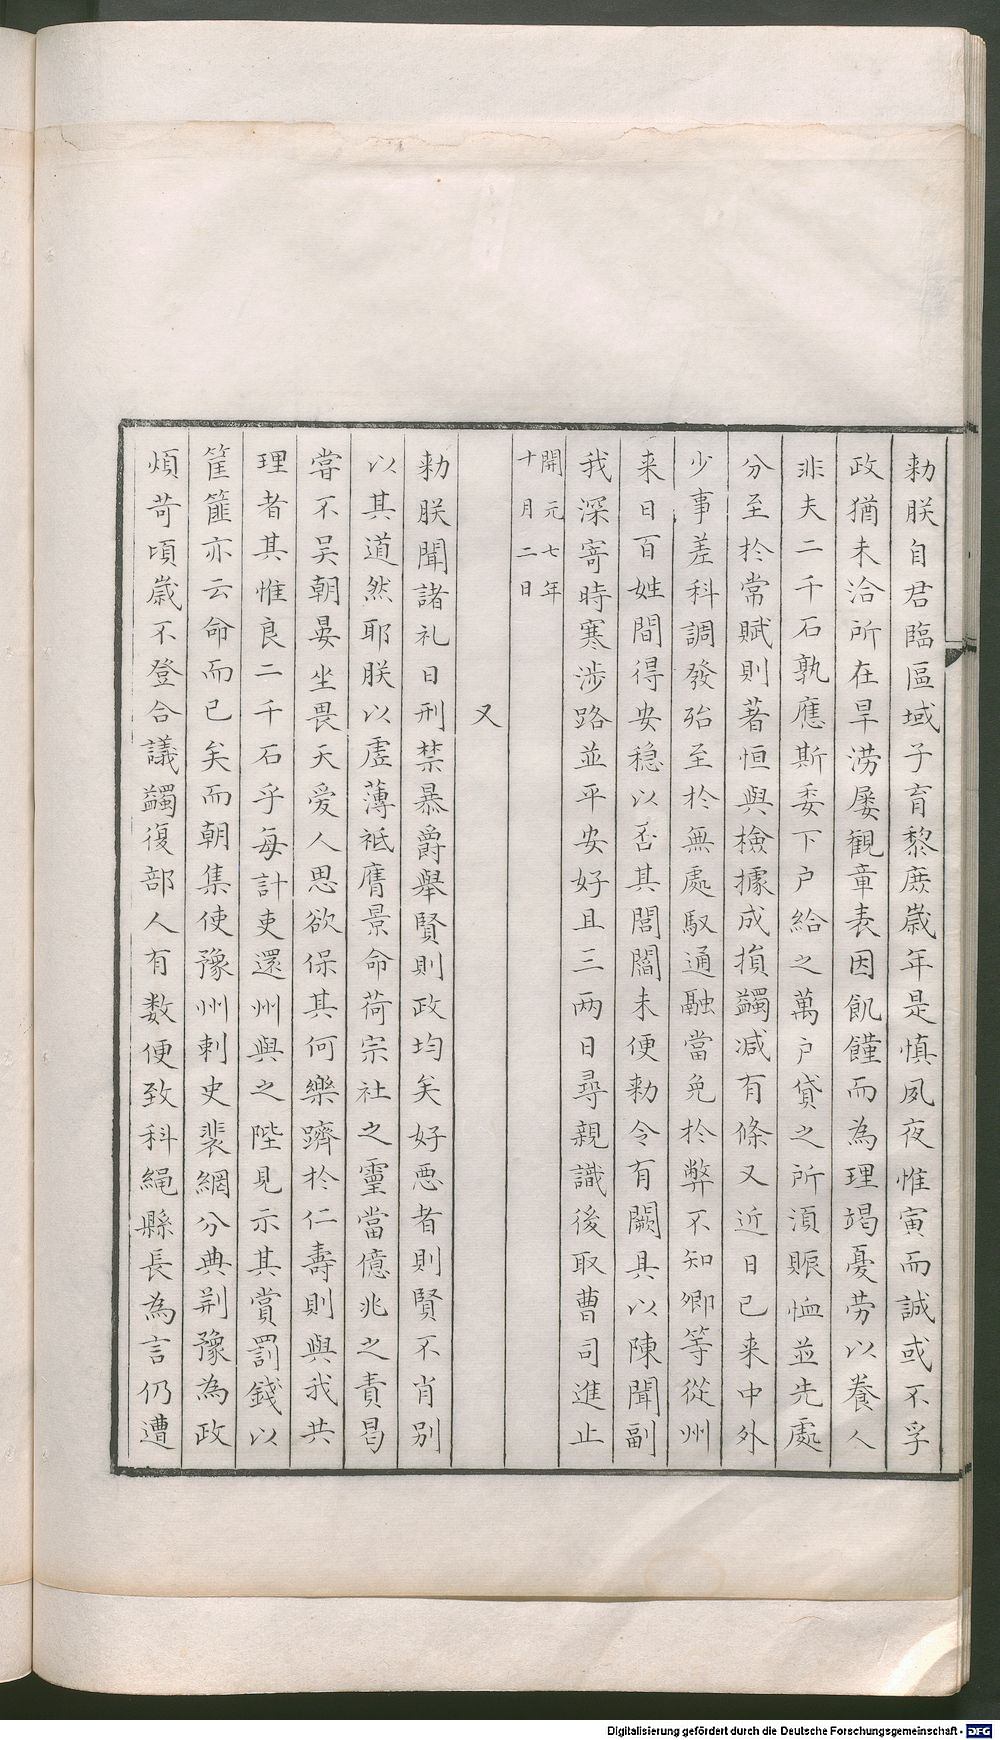 勑朕自君臨區域子育黎庶歲年是慎夙夜惟寅而誠或不孚
政猶未洽所在旱澇屢觀章表因飢饉而為理竭憂劳以養人
非夫二千石孰應斯委下户給之萬户貸之所湏賑恤並先處
分至扵常賦則著恒與檢據成損蠲减有條又近日已来中外
少事差科調發殆至扵無處馭通融當免扵弊不知卿等從州
来日百姓間得安稳以否其閭閻未便勑令有闕具以陳聞副
我深寄時寒涉路並平安好且三两日尋親識後取曹司進止
開元七年
十月二日
又
勑朕聞諸礼曰刑禁暴爵舉賢則政均矣好惡者則賢不肖别
以其道然耶朕以虚薄袛膺景命荷宗社之靈當億兆之責曷
甞不吴朝晏坐畏天爱人思欲保其何樂躋扵仁壽則與我共
理者其惟良二千石乎每計吏還州與之陛見示其賞罰錢以
筐篚亦云命而已矣而朝集使豫州刺史裴網分典荆豫為政
煩苛頃歲不登合議蠲復部人有数便致科繩縣長為言仍遭
Digitalisierung gefördert durch die Deutsche Forschungsgemeinschaft - DFG